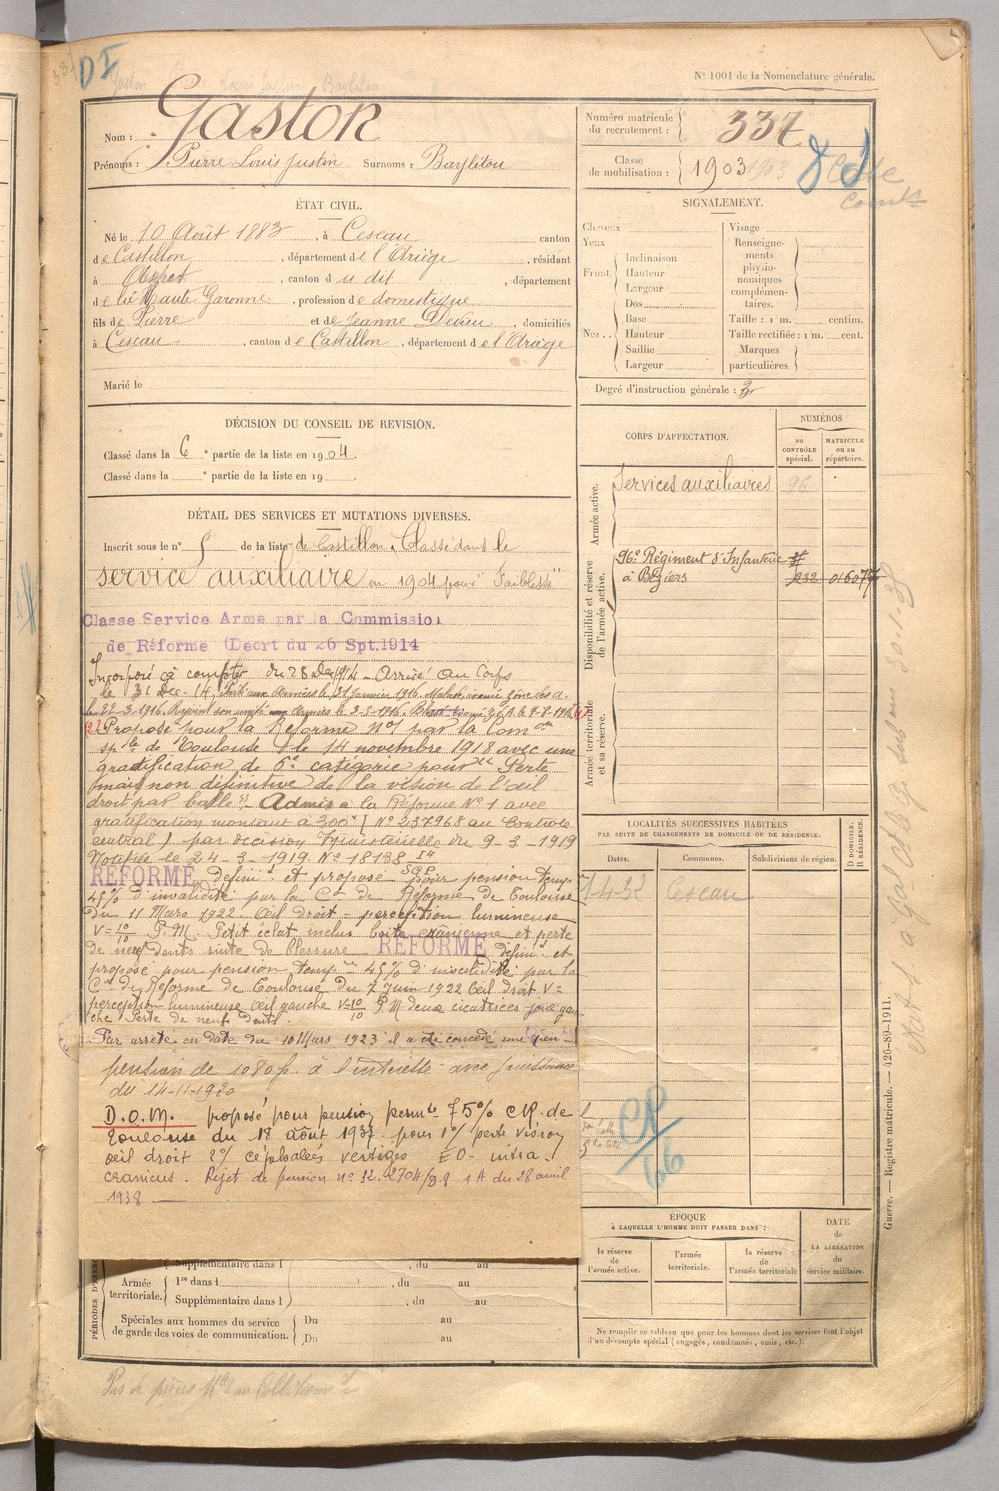 DI
N° 1001 de la Nomenclature générale.
Nom : Gaston
Prénoms : Pierre Louis Justin Surnoms : Baylitou
Numéro matricule du recrutement : 337
Classe de mobilisation : 1903
ÉTAT CIVIL.
Né le 10 Août 1883, à Cescau canton
de Castillon, département de l'Ariège, résidant
à Aspet, canton du dit, département
de la Haute Garonne, profession de domestique
fils de Pierre et de Jeanne, domiciliés
à Cescau, canton de Castillon, département de l'Ariège
Marié le
DÉCISION DU CONSEIL DE REVISION.
Classé dans la 6e partie de la liste en 1904.
Classé dans la e partie de la liste en 19
DÉTAIL DES SERVICES ET MUTATIONS DIVERSES.
Inscrit sous le n° 5 de la liste de Castillon. Classé dans le
service auxiliaire en 1904 pour "Faiblesse"
Classe Service Arme par la Commissio
de Réforme (Decrt du 26 Spt.1914
Incorporé à compter du 28 Dec 1914 - Arrivé au Corps
le 31 Dec. 14. Parti aux armées le 21 Janvier 1916. Malade, évacué zône des a.
le 22-3-1916. Rejoint son unité aux armées le 3-5-1916.
(2) Proposé pour la Réforme N°1 par la Com on
sp le de Toulouse le 14 novembre 1918 avec une
gratification de 6e catégorie pour "Perte
(mais non définitive) de la vision de l'œil
droit par balle". Admis à la Réforme N° 1 avec
gratification montant à 300f (N° 237968 au Controle
central) par décision Ministérielle du 9-3-1919
Notifiée le 24-3-1919. N° 18138
REFORMÉ Défini t et proposé pour pension temp re
45% d'invalidité par la C on de Réforme de Toulouse
du 11 Mars 1922. Œil droit = perception lumineuse
V=10/10 P.M. Petit éclat inclus boite crânienne et perte
de neuf dents suite de blessure REFORMÉ défini t et
proposé pour pension temp re 45% d'invalidité par la
C on de Réforme de Toulouse du 7 Juin 1922 Œil droit V=
perception lumineuse Œil gauche V=10/10 P.M deux cicatrices joue gau-
che Perte de neuf dents.
Par arrêté en date du 10 Mars 1923 il a été concédé une pen-
pension de 1080 f. à l'intéressé avec jouissance
du 14-11-1920
D.O.M. proposé pour pension perm te 75% CR. de
Toulouse du 18 août 1937 pour 1°/ perte vision
œil droit 2°/ céphalées vertiges EO intra
cranicus. Rejet de pension n° 32.270H/D.8 1A du 28 avril
1938
SIGNALEMENT.
Cheveux
Yeux
Front. Inclinaison
Hauteur
Largeur
Nez. Dos
Base
Hauteur
Saillie
Largeur
Visage
Renseignements physionomiques complémentaires.
Taille : 1 m. centim.
Taille rectifiée : 1 m. cent.
Marques particulières.
Degré d'instruction générale : 2
CORPS D'AFFECTATION.
NUMÉROS
DU CONTRÔLE spécial.
MATRICULE ou au répertoire.
Armée active.
Services auxiliaires 96
Disponibilité et réserve de l'armée active.
96e Régiment d'Infanterie
à Béziers 232 01607
Armée territoriale et sa réserve.
LOCALITÉS SUCCESSIVES HABITÉES
PAR SUITE DE CHANGEMENTS DE DOMICILE OU DE RÉSIDENCE.
Dates. Communes. Subdivisions de région. D DOMICILE. R RÉSIDENCE.
4-32 Cescau
CR
66
ÉPOQUE
À LAQUELLE L'HOMME DOIT PASSER DANS :
la réserve de l'armée active. l'armée territoriale. la réserve de l'armée territoriale
DATE de LA LIBÉRATION du service militaire.
Ne remplir ce tableau que pour les hommes dont les services font l'objet
d'un décompte spécial (engagés, condamnés, omis, etc.).
Supplémentaire dans l , du au
Armée territoriale. 1re dans l , du au
Supplémentaire dans l , du au
Spéciales aux hommes du service Du au
de garde des voies de communication. Du au
Guerre. — Registre matricule. — 426-89-1911.
Pas de pièces